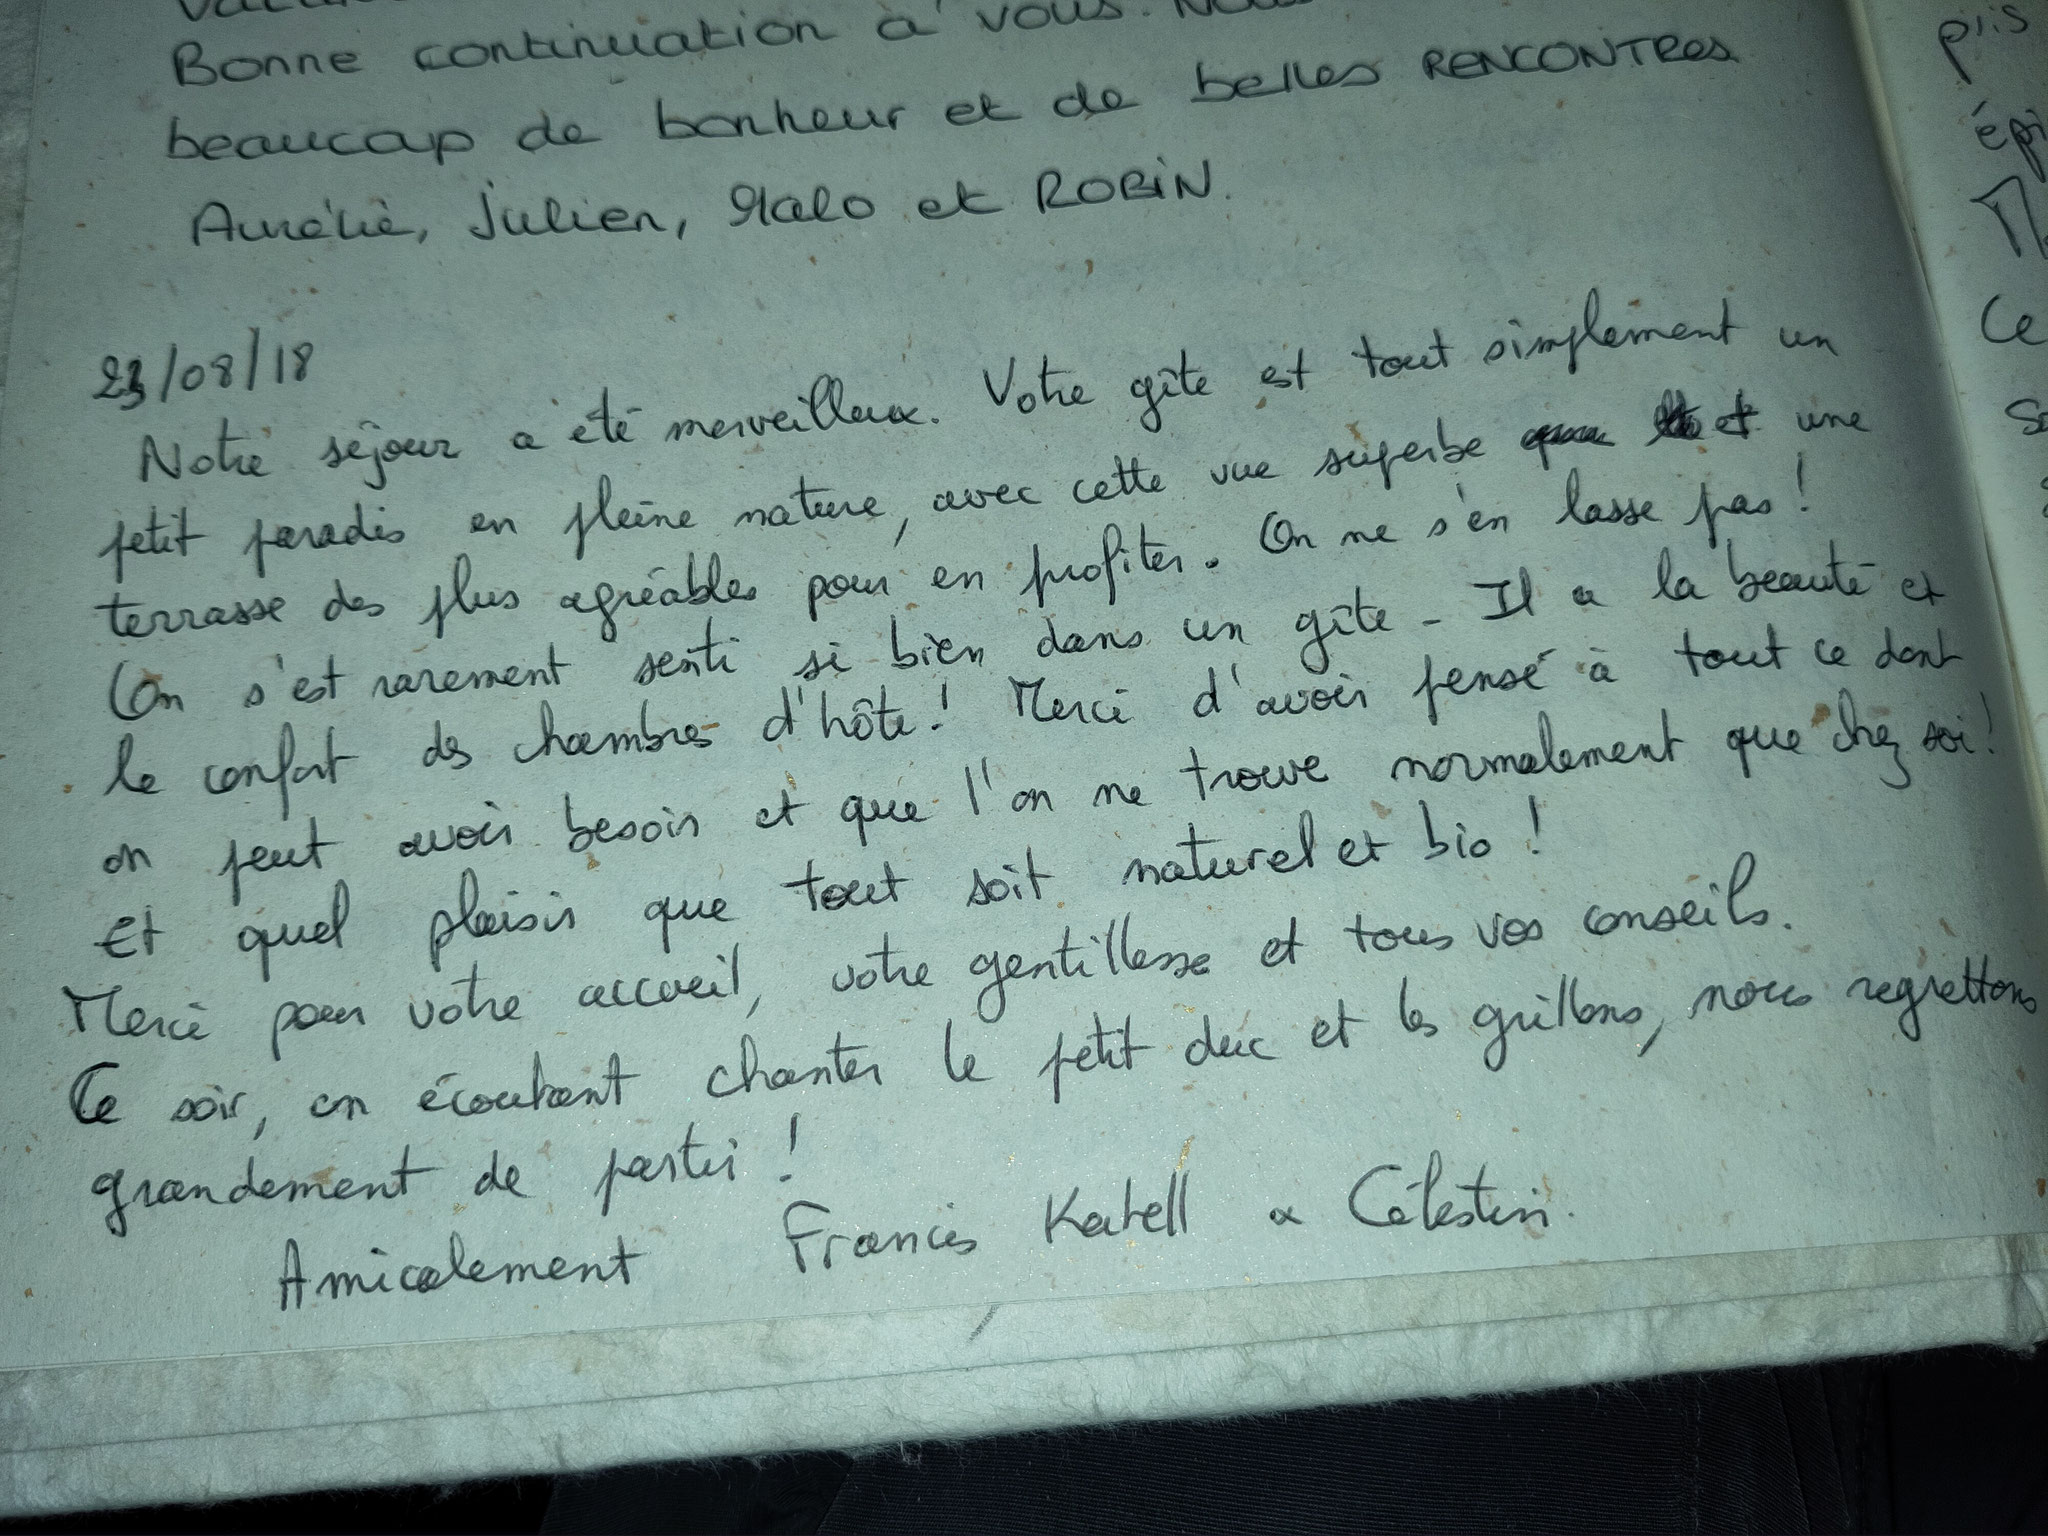 Bonne continuation à vous.
beaucoup de bonheur et de belles RENCONTRES
Aurélie, Julien, Malo et ROBIN.
23/08/18
Notre séjour a été merveilleux. Votre gîte est tout simplement un
petit paradis en pleine nature, avec cette vue superbe et une
terrasse des plus agréables pour en profiter. On ne s'en lasse pas !
On s'est rarement senti si bien dans un gîte - Il a la beauté et
le confort des chambres d'hôte ! Merci d'avoir pensé à tout ce dont
on peut avoir besoin et que l'on ne trouve normalement que chez soi !
Et quel plaisir que tout soit naturel et bio !
Merci pour votre accueil, votre gentillesse et tous vos conseils.
Ce soir, en écoutant chanter le petit duc et les grillons, nous regrettons
grandement de partir !
Amicalement Francis Katell & Célestin.
plis
Ce